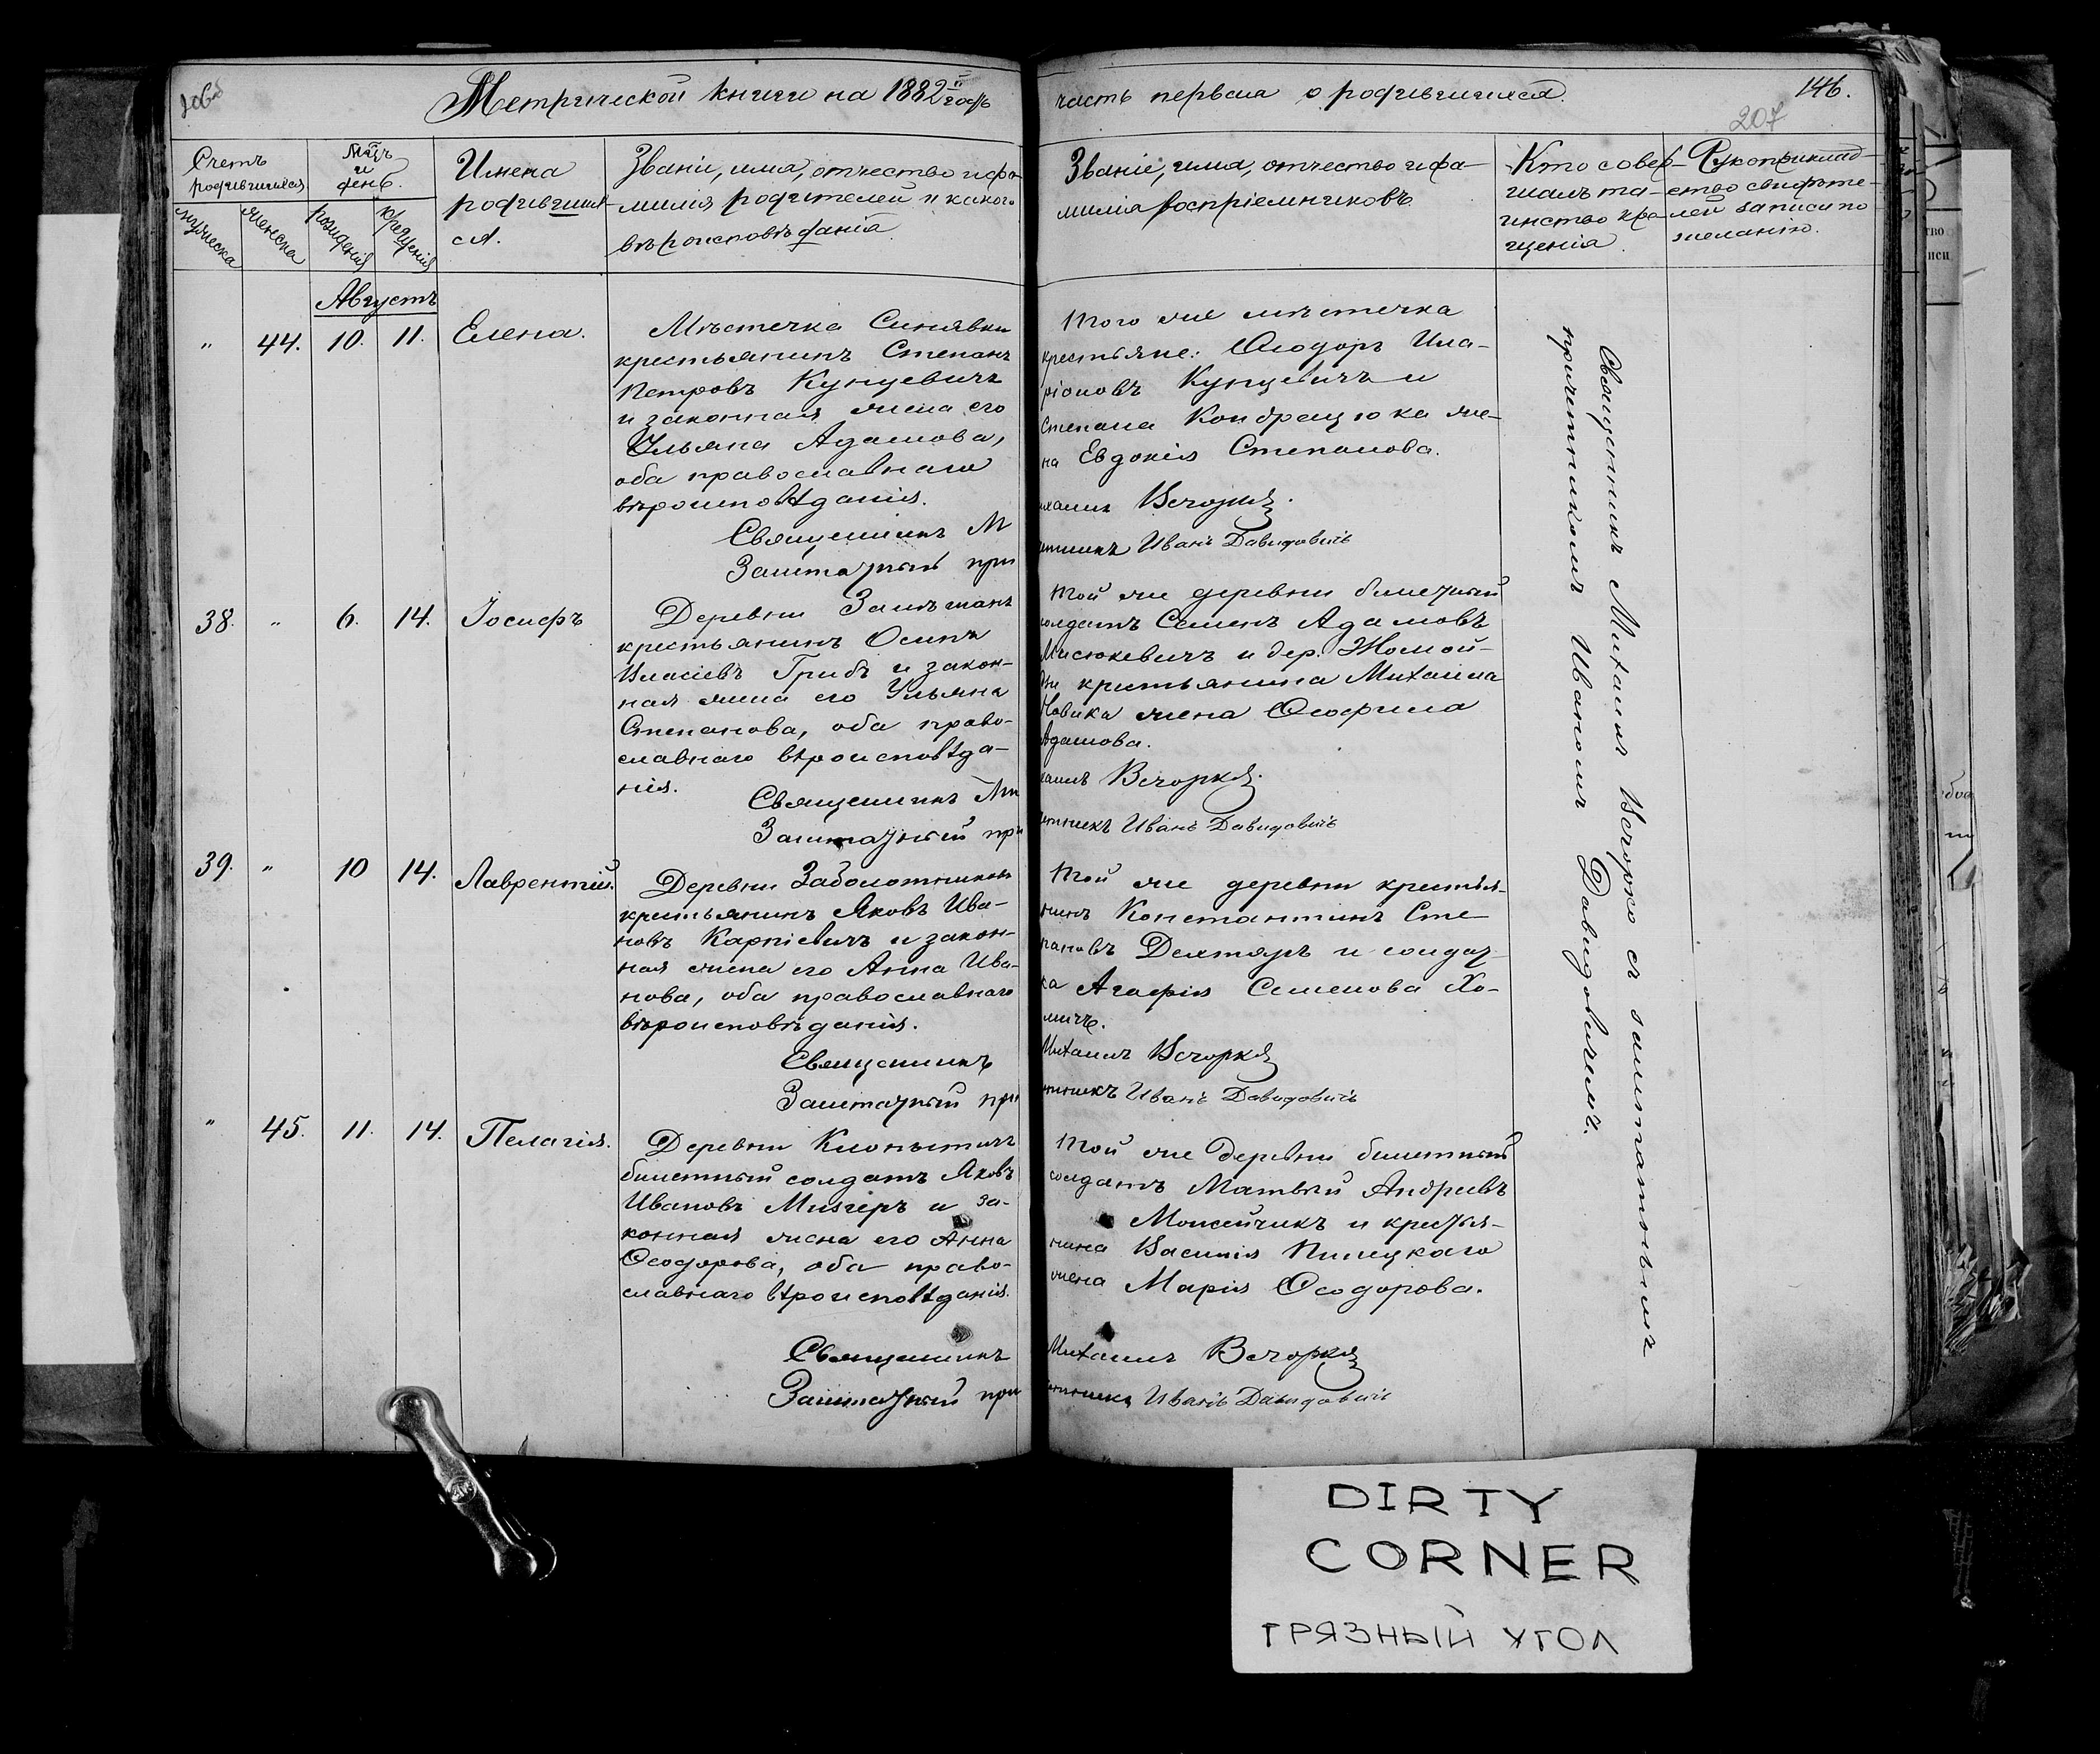 Метрической книги на 1882й годъ
часть первая о родившихся.
146.
207
Счетъ родившихся.
Мѣсяцъ и день.
мужеска
женска
рожденія
крещенія
Имена
родивших-
ся.
Званіе, имя, отчество и фа-
милія родителей и какого
вѣроисповѣданія
Званіе, имя, отчество и фа-
милія воспріемниковъ
Кто совер-
шалъ та-
инство кре-
щенія.
Рукоприклад-
ство свидѣте-
лей записи по
желанію.
Августъ
" 44. 10. 11. Елена.
Мѣстечка Синявки
крестьянинъ Степанъ
Петровъ Кунцевичъ
и законная жена его
Ульяна Адамова,
оба православнаго
вѣроисповѣданія.
Священникъ М
Заштатный при
Того же мѣстечка
крестьяне: Ѳеодоръ Ила-
ріоновъ Кунцевичъ и
Степана Кондрацюка же-
на Евдокія Степанова.
ихаилъ Вечорко.
етникъ Иванъ Давидовичъ
38. " 6. 14. Іосифъ
Деревни Замѣшанъ
крестьянинъ Осипъ
Власіевъ Грибъ и закон-
ная жена его Ульяна
Степанова, оба право-
славнаго вѣроисповѣда-
нія.
Священникъ Ми
Заштатный при
Той же деревни билетный
солдатъ Семенъ Адамовъ
Мисюкевичъ и дер. Жомой-
ди крестьянина Михаила
Новика жена Ѳеофила
Адамова.
хаилъ Вечорко.
етникъ Иванъ Давидовичъ
39. " 10 14. Лаврентій.
Деревни Заболотниковъ
крестьянинъ Яковъ Ива-
новъ Карпіевичъ и закон-
ная жена его Анна Ива-
нова, оба православнаго
вѣроисповѣданія.
Священникъ
Заштатный при
Той же деревни крестья-
нинъ Константинъ Сте-
пановъ Дехтяръ и солдат-
ка Агафія Семенова Хо-
мичъ.
Михаилъ Вечорко
етникъ Иванъ Давидовичъ
" 45. 11. 14. Пелагія.
Деревни Клопытичъ
билетный солдатъ Яковъ
Ивановъ Мизгеръ и за-
конная жена его Анна
Ѳеодорова, оба право-
славнаго вѣроисповѣданія.
Священникъ
Заштатный при
Той же деревни билетный
солдатъ Матвѣй Андреевъ
Моисейчикъ и крестья-
нина Василія Пилецкаго
жена Марія Ѳеодорова.
Михаилъ Вечорко
етникъ Иванъ Давидовичъ
Священникъ Михаилъ Вечорко съ заштатнымъ
причетникомъ Иваномъ Давидовичемъ.
DIRTY
CORNER
ГРЯЗНЫЙ УГОЛ